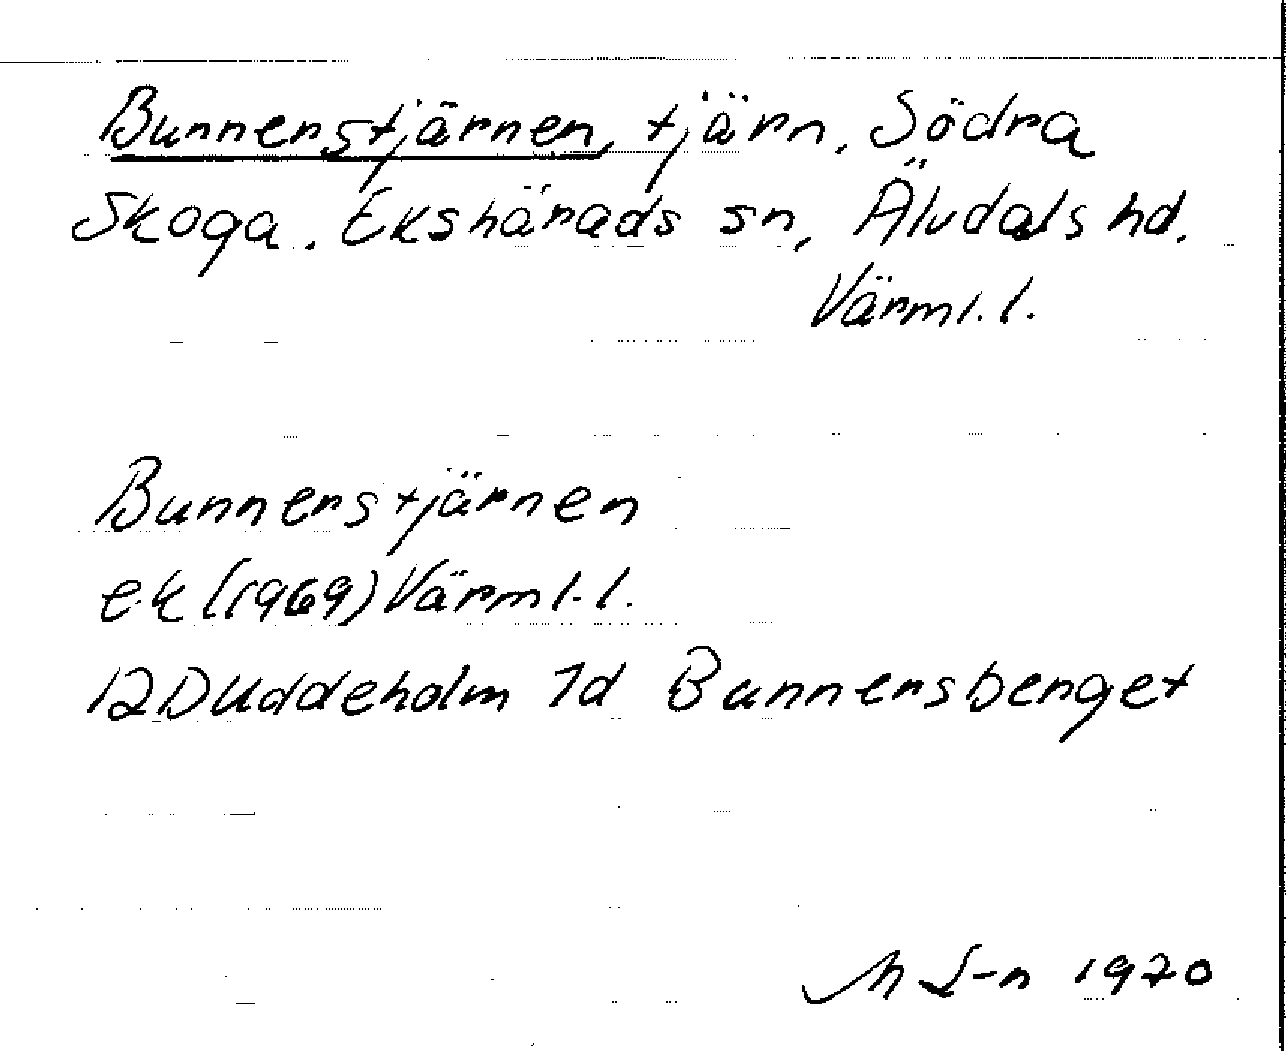 Bunnerstjärnen, tjärn, Södra
Skoga. Ekshärads sn, Älvdals hd.
Värml. l.
Bunnerstjärnen
ek (1969) Värml. l.
12D Uddeholm 7d Bunnersberget
M L-n 1970